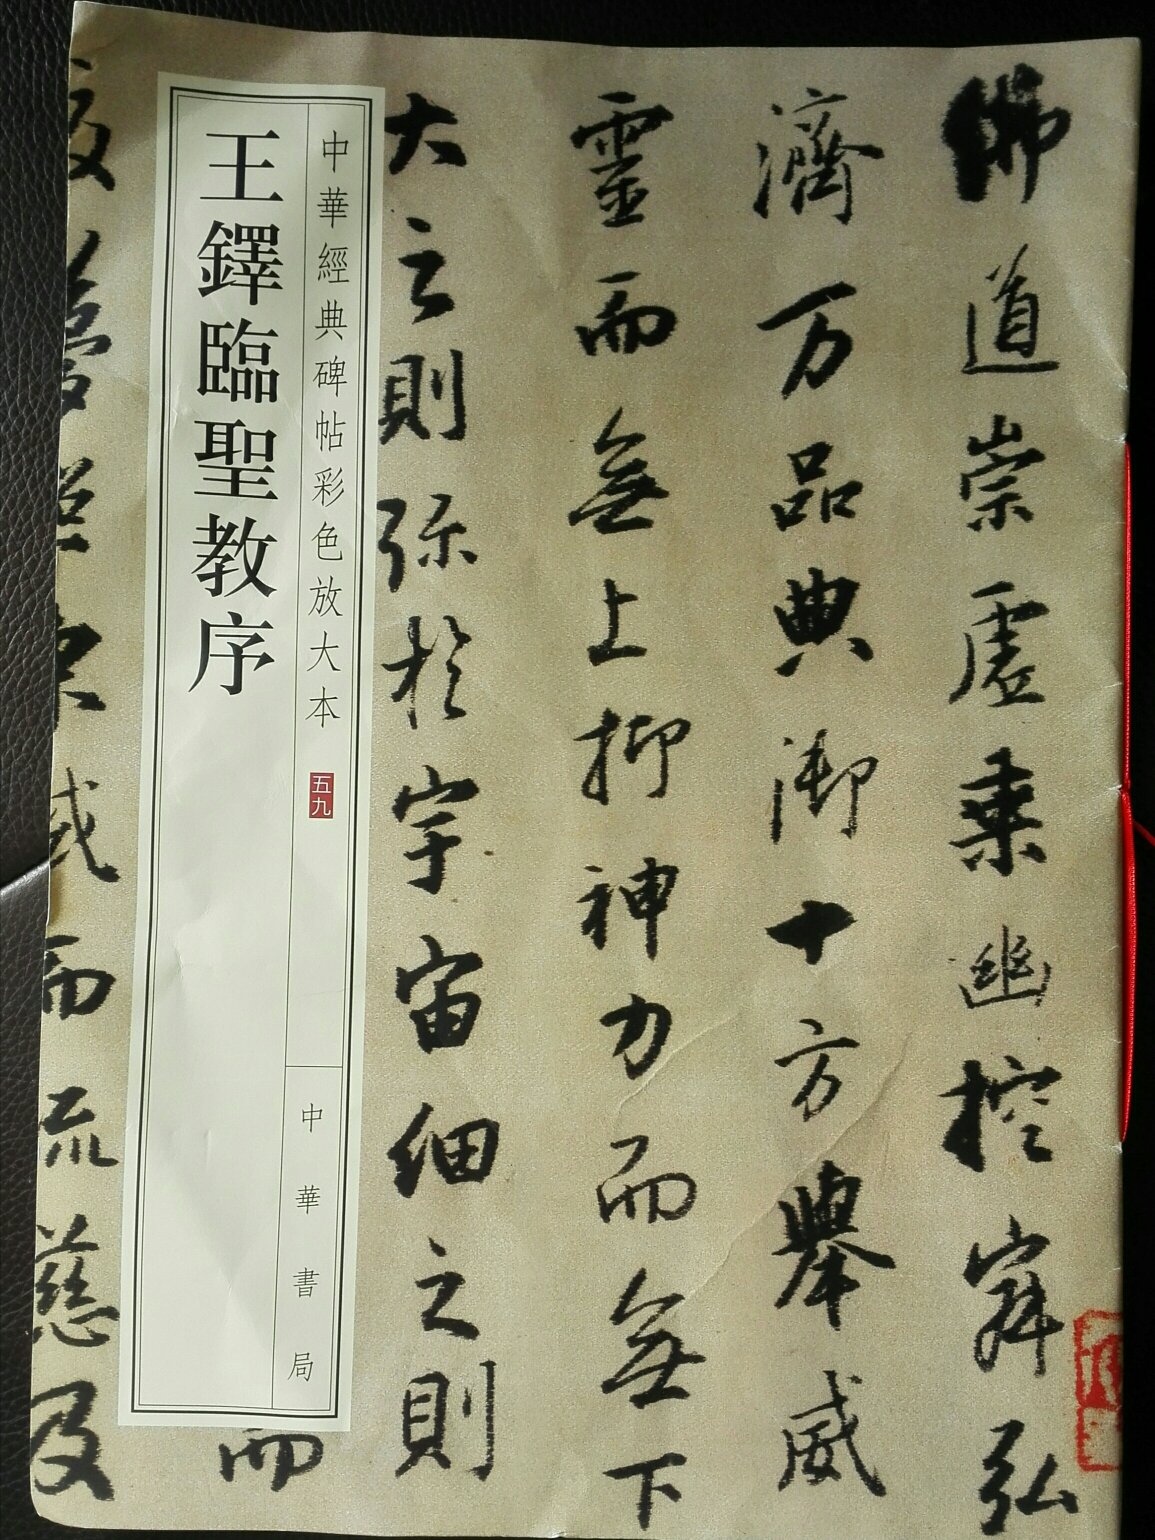 佛道崇虛乘幽控寂弘
濟万品典御十方舉威
靈而無上抑神力而無下
大之則弥於宇宙細之則
中華經典碑帖彩色放大本
五九
中華書局
王鐸臨聖教序
而
而流慈及